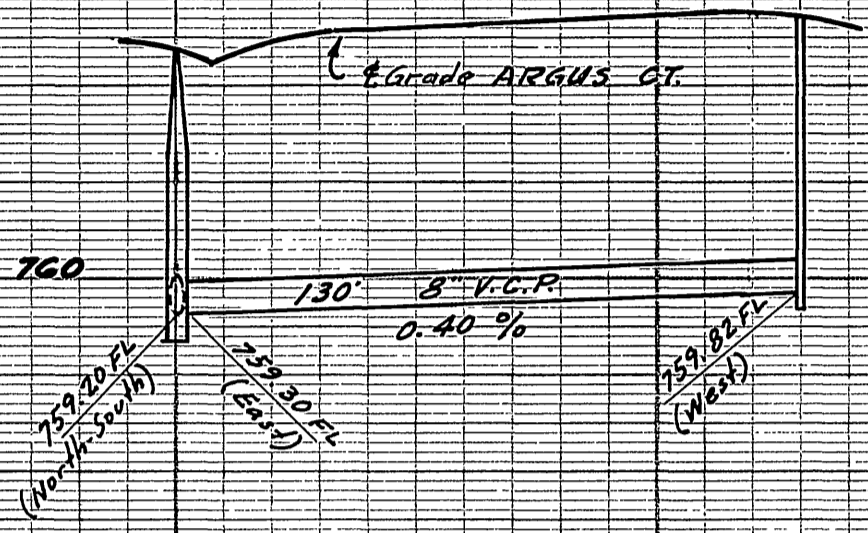 ℄ Grade ARGUS CT.
760
130' 8" V.C.P.
0.40 %
759.20 FL
(North-South)
759.30 FL
(East)
759.82 FL
(West)